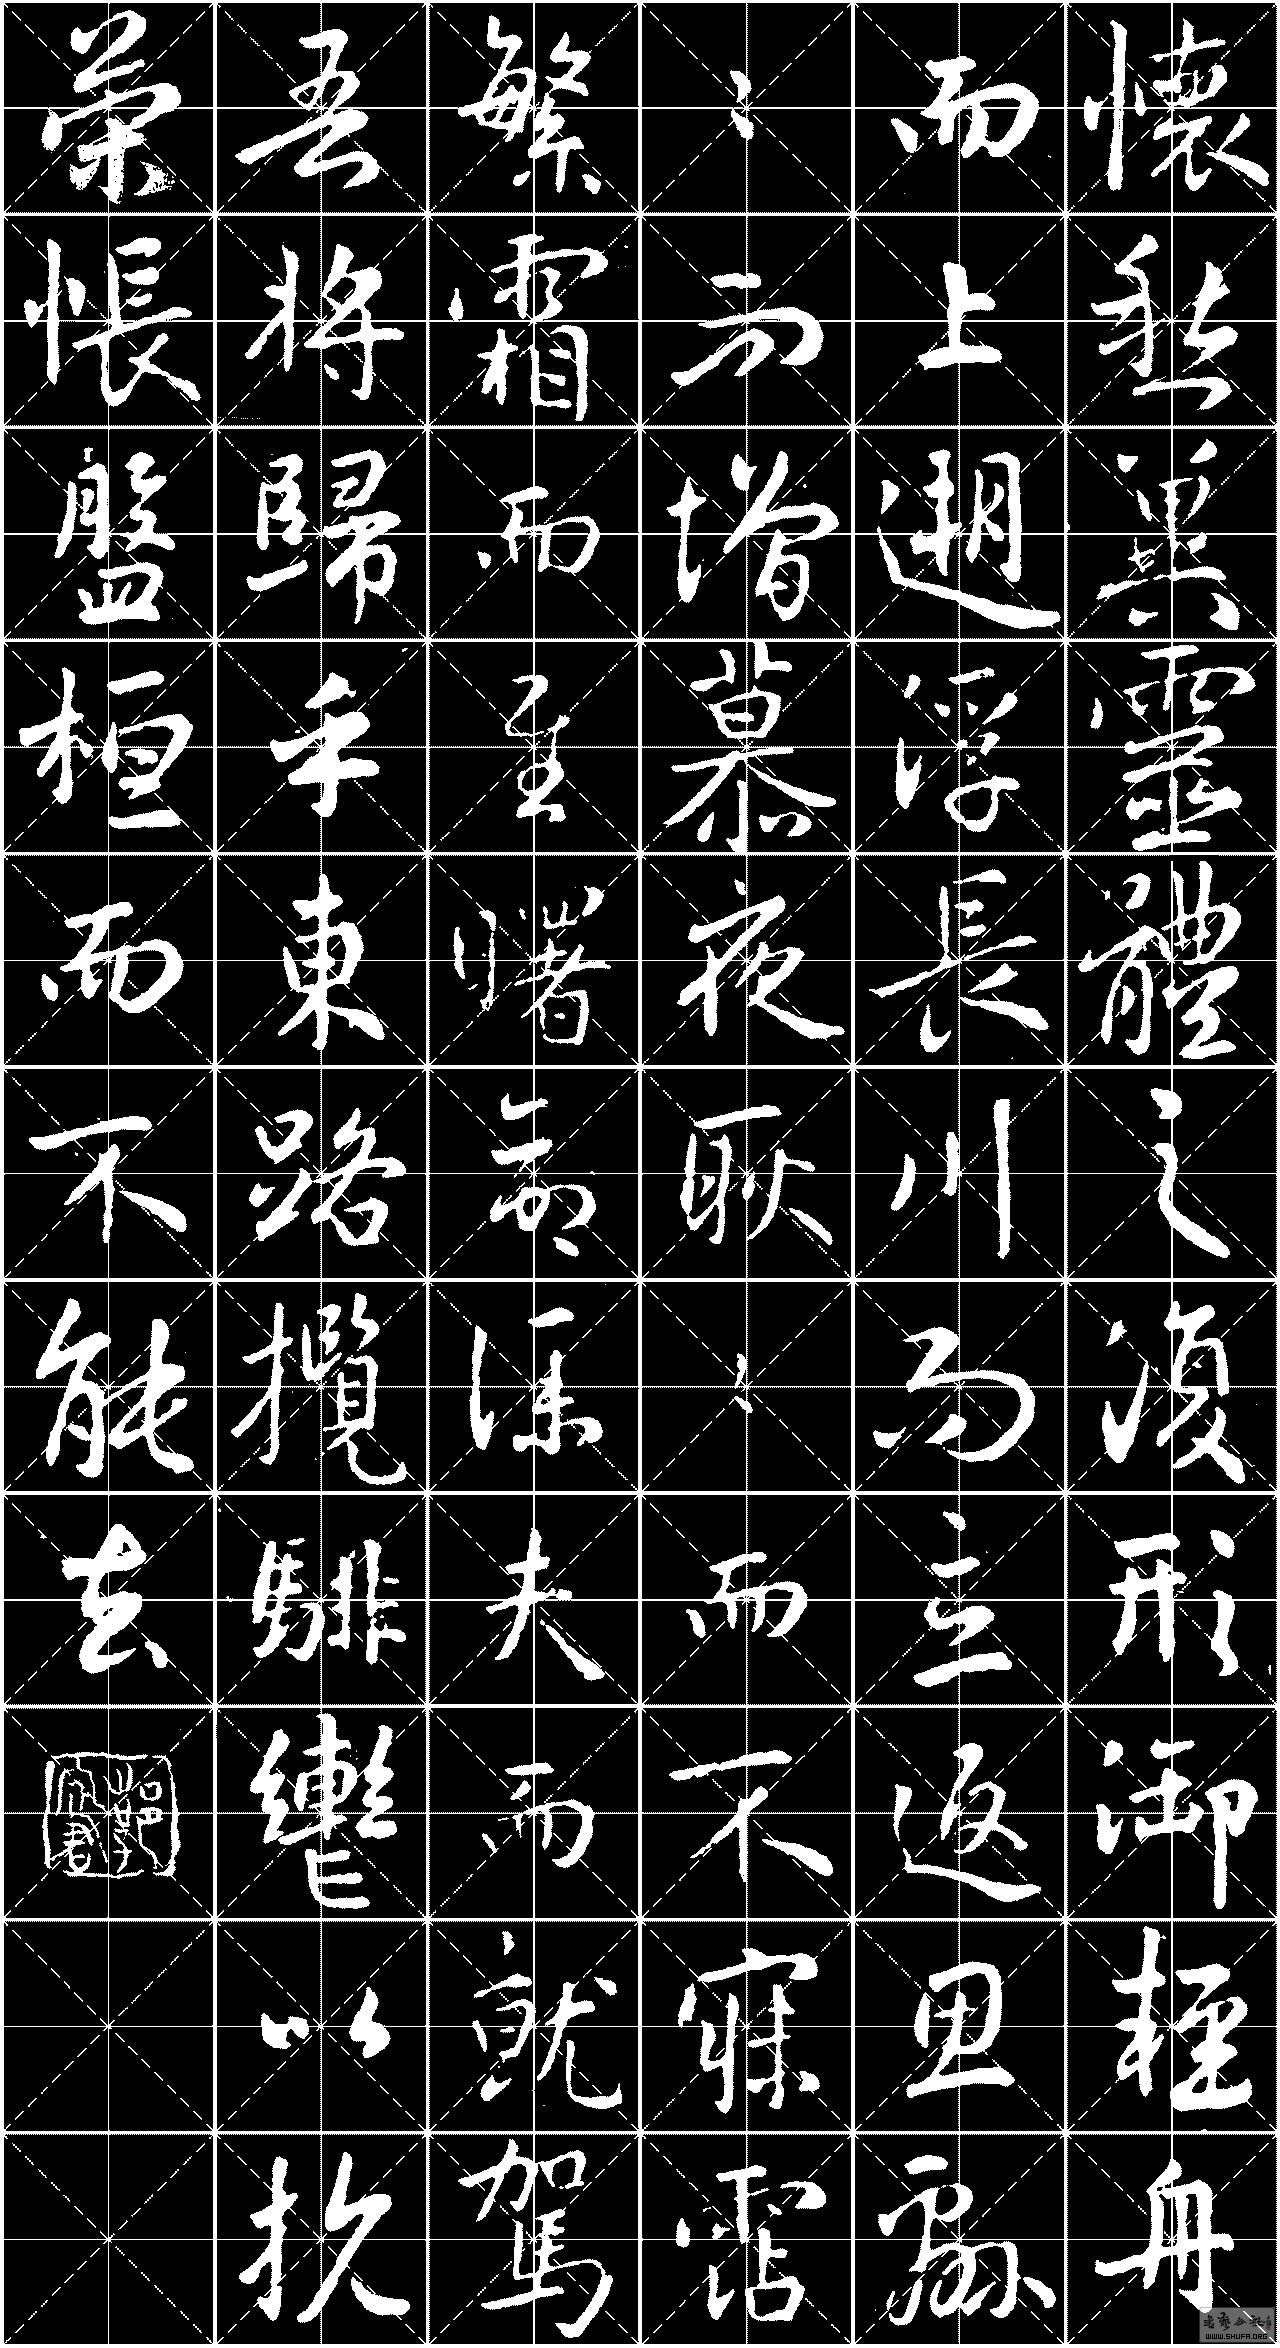 懷愁冀靈體之復形御輕舟
而上遡浮長川而忘返思緜
〻而增慕夜耿〻而不寐霑
繁霜而至曙命僕夫而就駕
吾將歸乎東路攬騑轡以抗
策悵盤桓而不能去
WWW.SHUFA.ORG